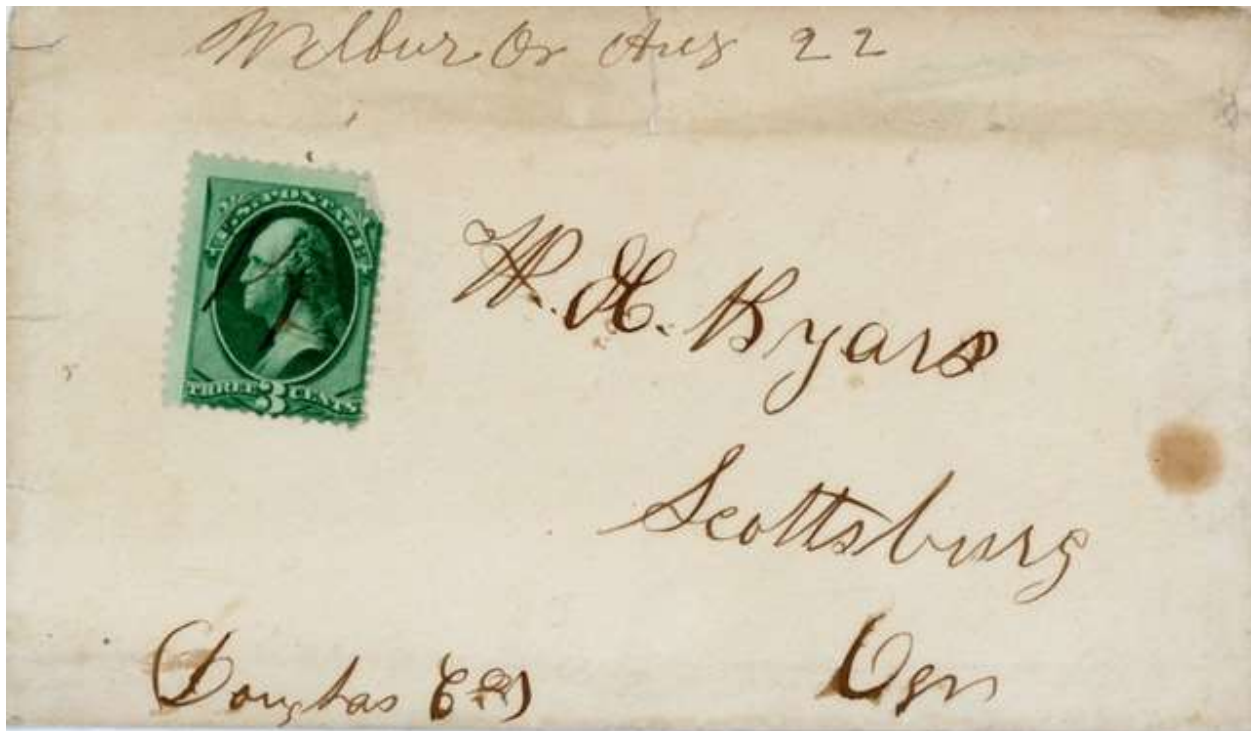 Wilbur Or Aug 22
U.S. POSTAGE
THREE 3 CENTS
W. H. Byars
Scottsburg
Ogn
Douglas Co